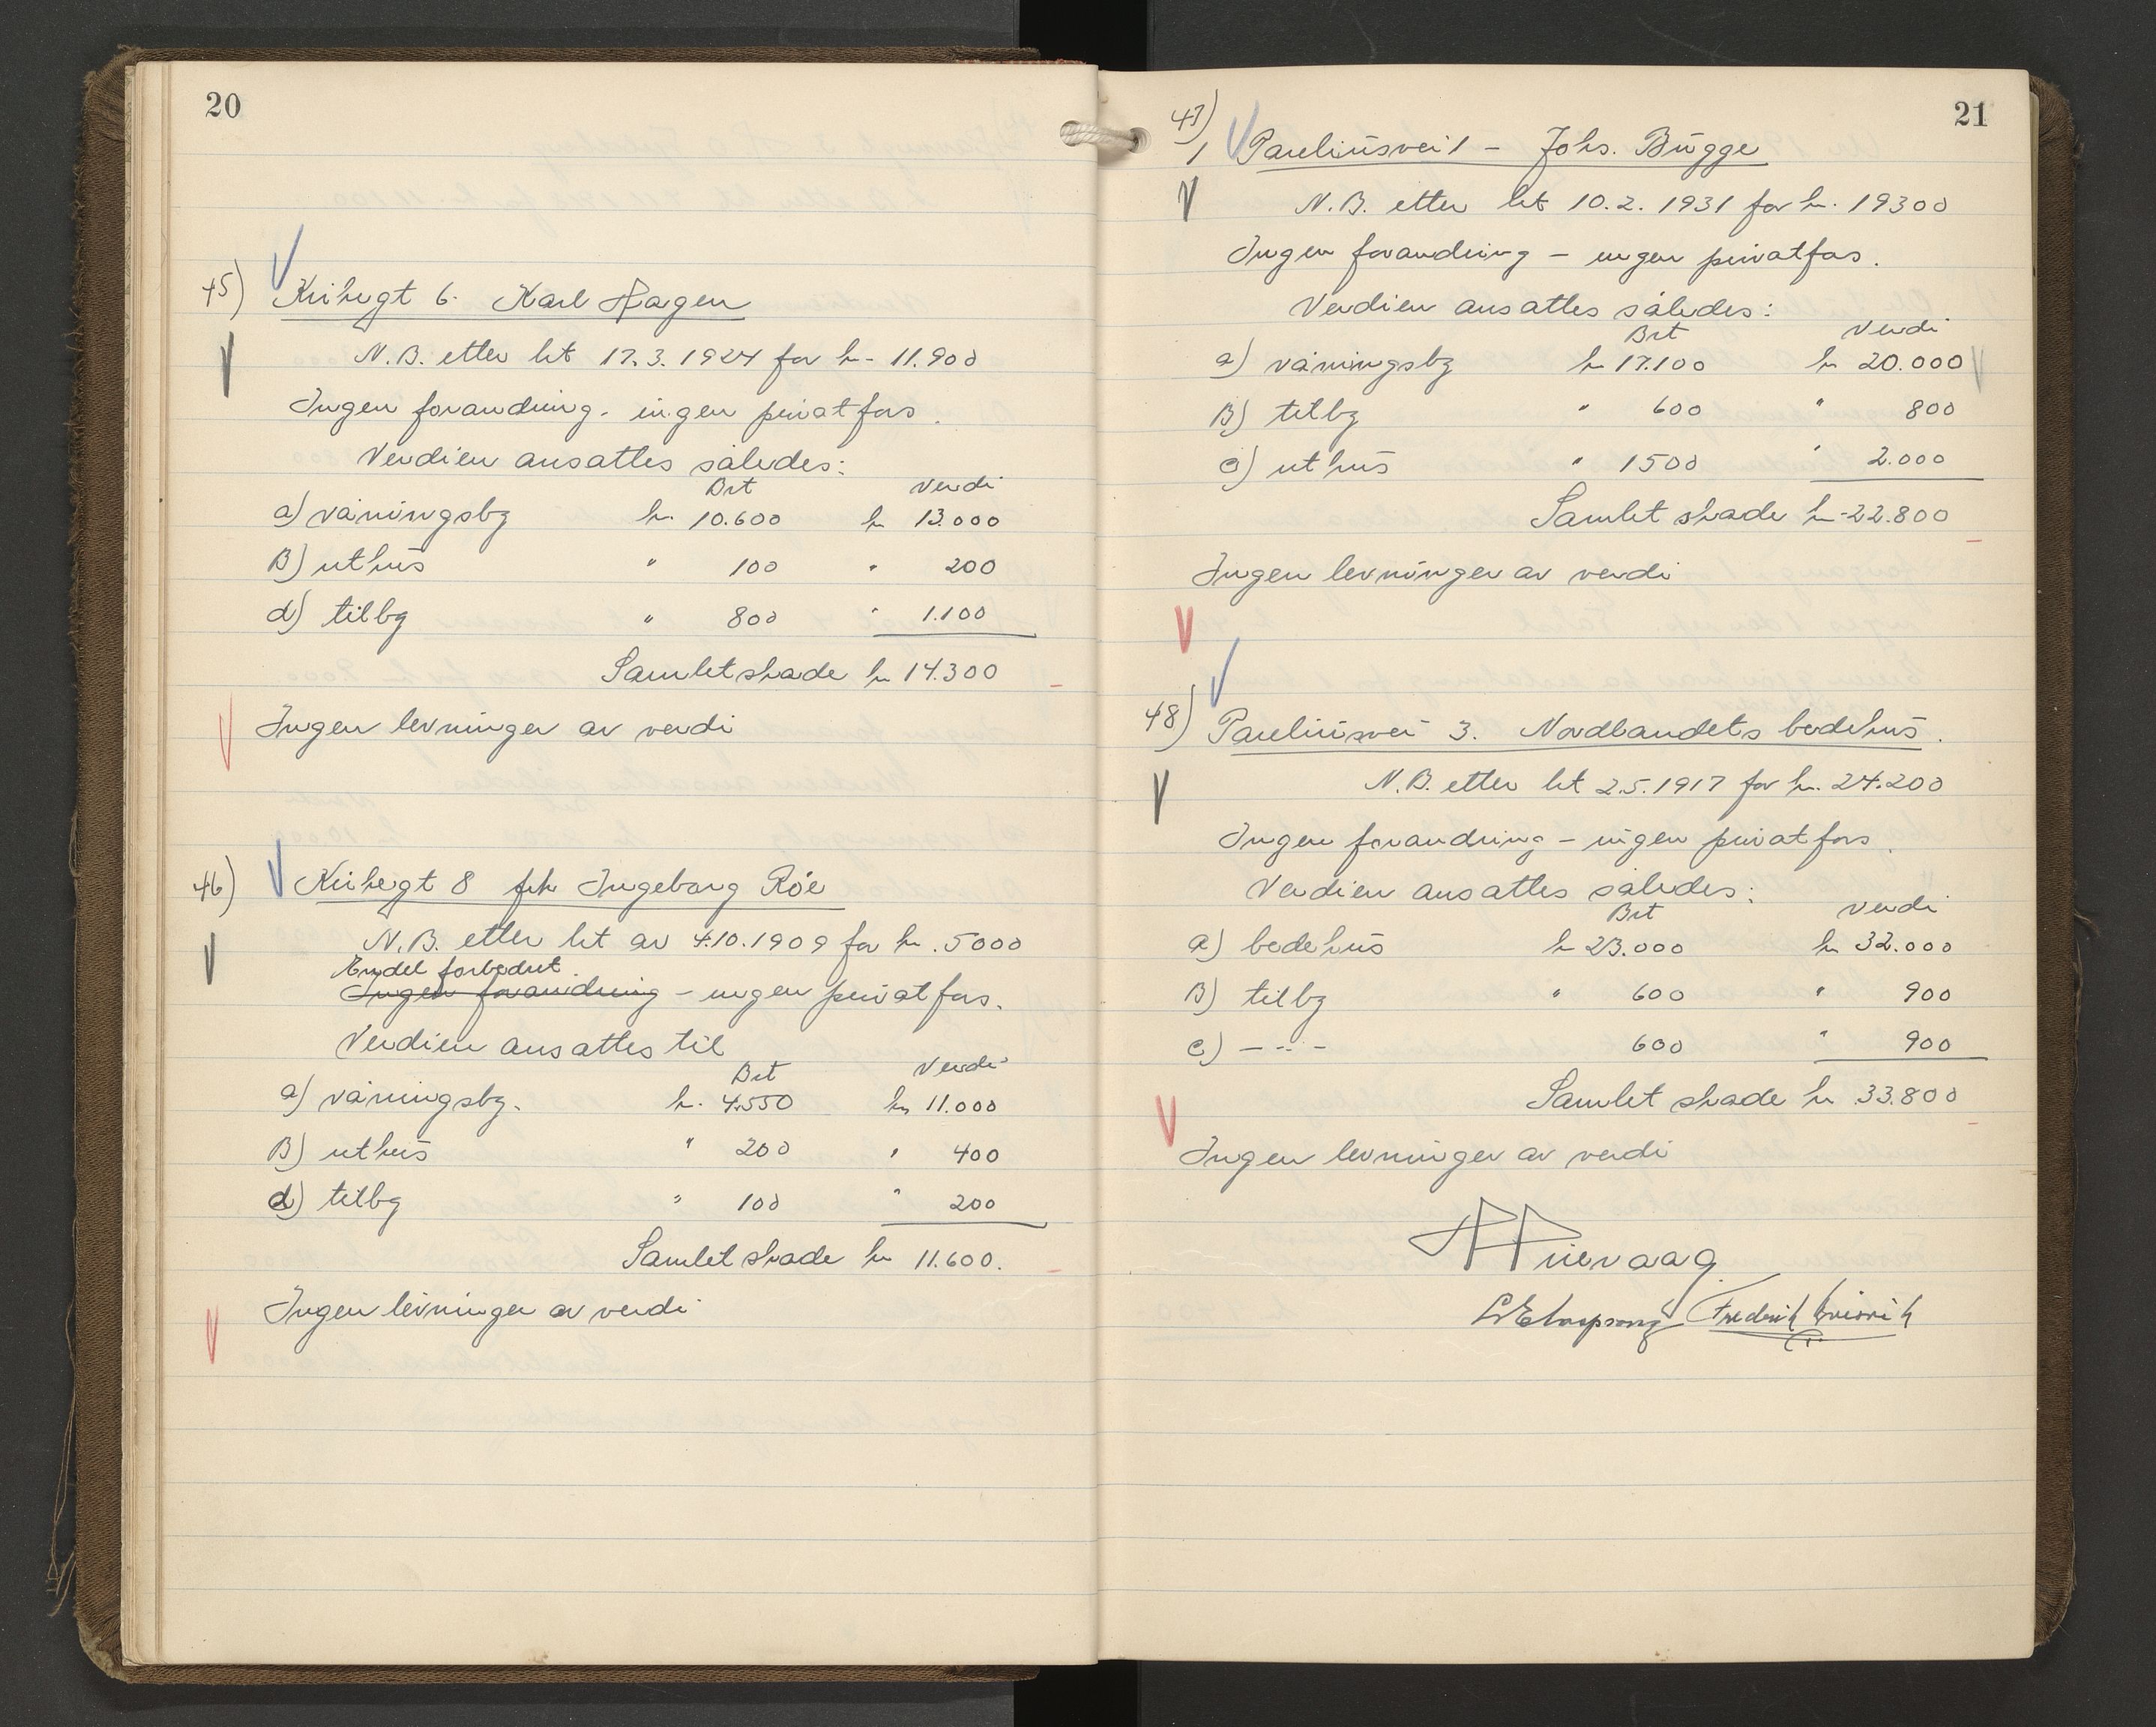 20
45) Kirkegt 6. Karl Hagen
N.B. etter lkt 17.3.1924 for kr. 11.900
Ingen forandring. ingen privatfors.
Verdien ansattes således:
Brt Verdi
a) våningsbg kr. 10.600 kr 13.000
B) uthus " 100 " 200
d) tilbg " 800 " 1.100
Samlet skade kr 14.300
Ingen levninger av verdi
46) Kirkegt 8 frk Ingeborg Röe
N.B. etter lkt av 4.10.1909 for kr. 5000
Endel forbedret.
Ingen forandring - ingen privatfors.
Verdien ansattes til
Brt Verdi
a) våningsbg. kr. 4.550 kr 11.000
B) uthus " 200 " 400
d) tilbg " 100 " 200
Samlet skade kr 11.600.
Ingen levninger av verdi
21
47)
1 Pauliusvei 1 - Johs. Bugge
N.B. etter lkt 10.2.1931 for kr. 19300
Ingen forandring - ingen privatfors.
Verdien ansattes således:
Brt Verdi
a) våningsbg kr 17.100 kr 20.000
B) tilbg " 600 " 800
c) uthus " 1500 " 2.000
Samlet skade kr 22.800
Ingen levninger av verdi
48) Pauliusvei 3. Nordlandets bedehus.
N.B. etter lkt 2.5.1917 for kr. 24.200
Ingen forandring - ingen privatfors.
Verdien ansattes således:
Brt Verdi
a) bedehus kr 23.000 kr 32.000
B) tilbg " 600 " 900
c) -"- 600 " 900
Samlet skade kr 33.800
Ingen levninger av verdi
Frederik